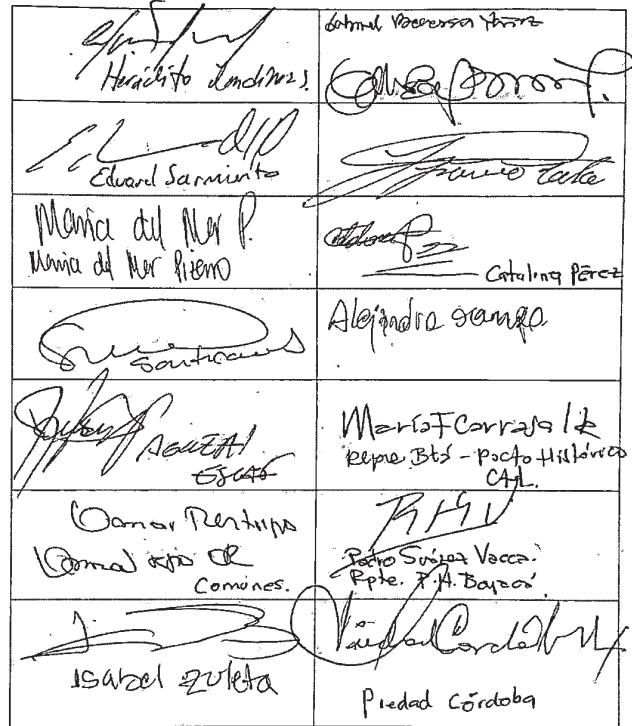 Heráclito Landinez.
Gabriel Becerra Yañez
Eduard Sarmiento
María del Mar P.
María del Mar Pizarro
Catalina Pérez
Alejandro Ocampo
Agmeth
Escaf
María F Carrascal R
Repre Btá - Pacto Histórico
Omar Restrepo
Comunes.
Pedro Suárez Vacca.
Rpte. P.H. Boyacá
Isabel Zuleta
Piedad Córdoba
Piedad Córdoba